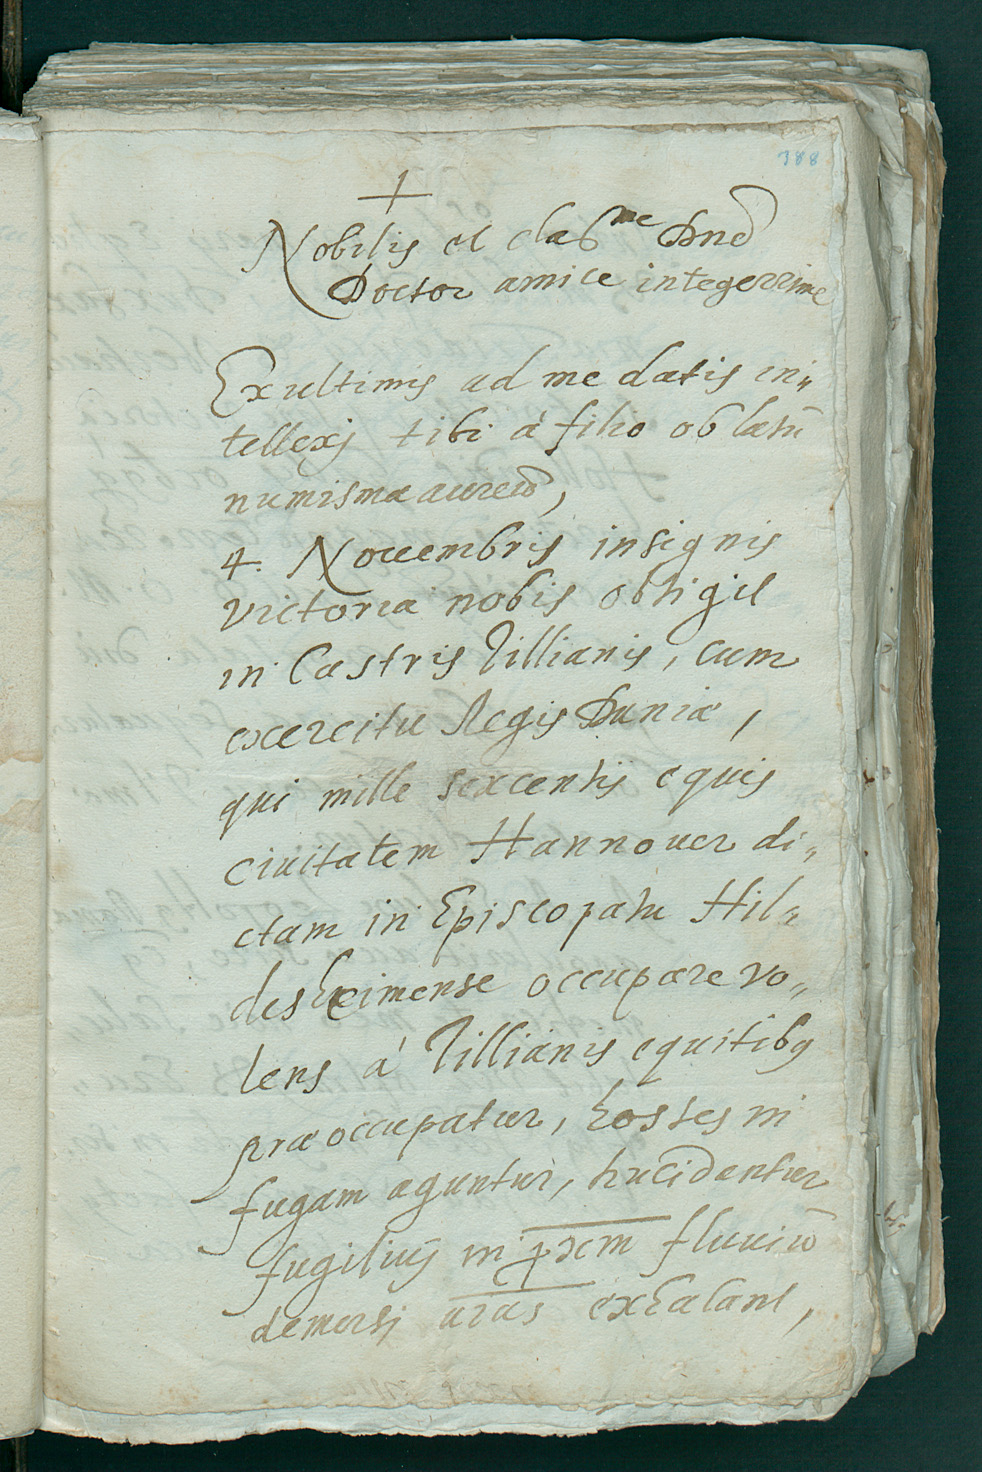 388
+
Nobilis et claß^me Dne
Doctor amice integerrime
Ex ultimis ad me datis in„
tellexj tibi á filio oblatū
numisma aureū,
4. Nouembris insignis
victoria nobis obtigit
in Castris Tillianis, cum
exercitu Regis Daniæ,
qui mille sexcentis equis
ciuitatem Hannouer di„
ctam in Episcopatu Hil„
desheimense occupare vo„
lens á Tillianis equitibꝰ
præoccupatur, hostes in
fugam aguntur, trucidantur
fugitiuj in pꝛoxm̄ fluuiū
demersj aīas exhalant,